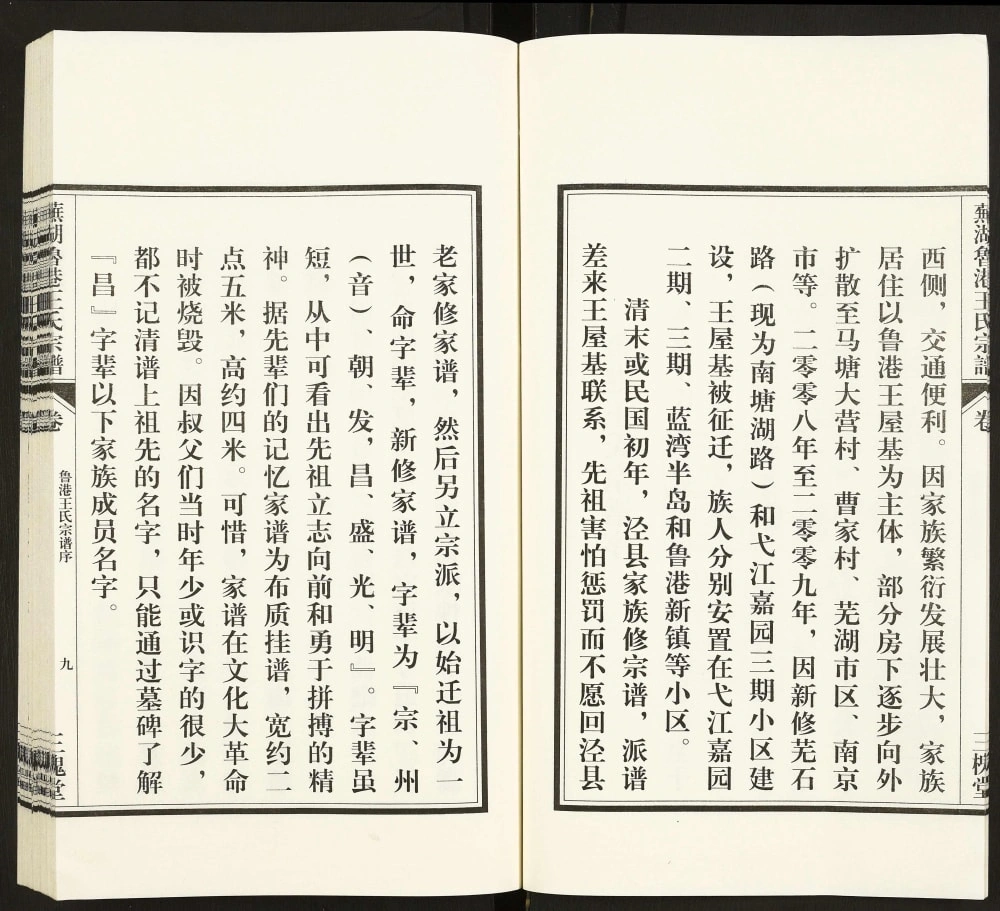 蕪湖鲁港王氏宗譜
卷
三槐堂
西侧，交通便利。因家族繁衍发展壮大，家族
居住以鲁港王屋基为主体，部分房下逐步向外
扩散至马塘大营村、曹家村、芜湖市区、南京
市等。二零零八年至二零零九年，因新修芜石
路（现为南塘湖路）和弋江嘉园三期小区建
设，王屋基被征迁，族人分别安置在弋江嘉园
二期、三期、蓝湾半岛和鲁港新镇等小区。
清末或民国初年，泾县家族修宗谱，派谱
差来王屋基联系，先祖害怕惩罚而不愿回泾县
老家修家谱，然后另立宗派，以始迁祖为一
世，命字辈，新修家谱，字辈为『宗、州
（音）、朝、发，昌、盛、光、明』。字辈虽
短，从中可看出先祖立志向前和勇于拼搏的精
神。据先辈们的记忆家谱为布质挂谱，宽约二
点五米，高约四米。可惜，家谱在文化大革命
时被烧毁。因叔父们当时年少或识字的很少，
都不记清谱上祖先的名字，只能通过墓碑了解
『昌』字辈以下家族成员名字。
蕪湖鲁港王氏宗譜
卷
鲁港王氏宗谱序
九
三槐堂